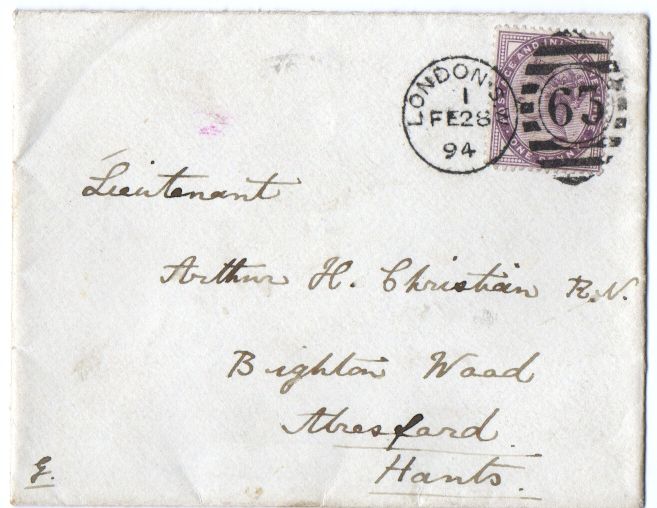 LONDON·S·W
1
FE28
94
63
POSTAGE AND INLAND REVENUE
ONE PENNY
Lieutenant
Arthur H. Christian R.N.
Brighton Wood
Alresford.
Hants.